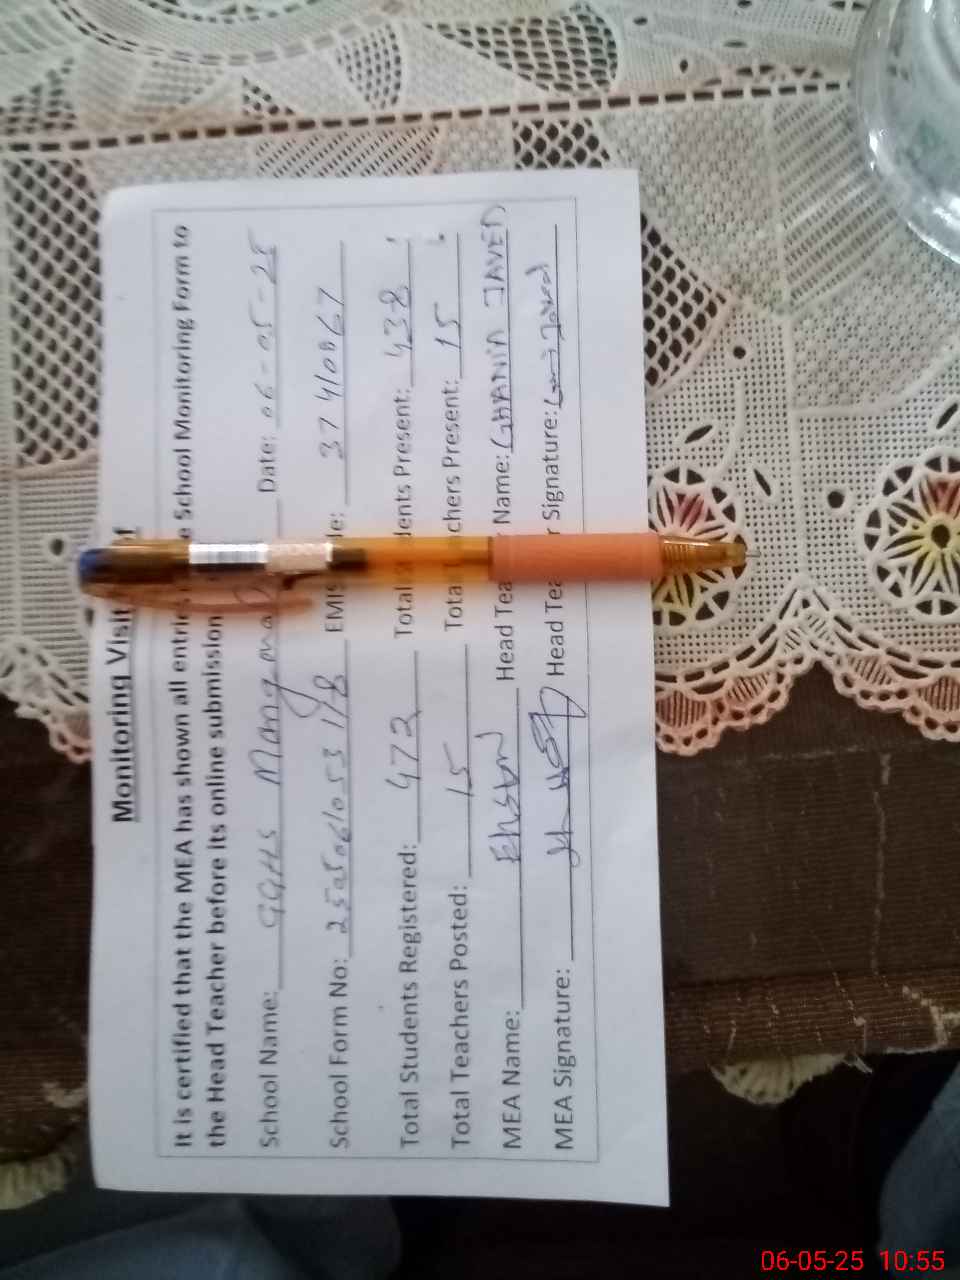 Monitoring Visit
It is certified that the MEA has shown all entries School Monitoring Form to
the Head Teacher before its online submission
School Name: GGHS Date: 06-05-25
School Form No: EMIS 37410067
Total Students Registered: 472 Total Students Present: 438
Total Teachers Posted: 15 Total Teachers Present: 15
MEA Name: Ehsan Head Teacher Name: GHANIA JAVED
MEA Signature: Head Teacher Signature:
06-05-25 10:55